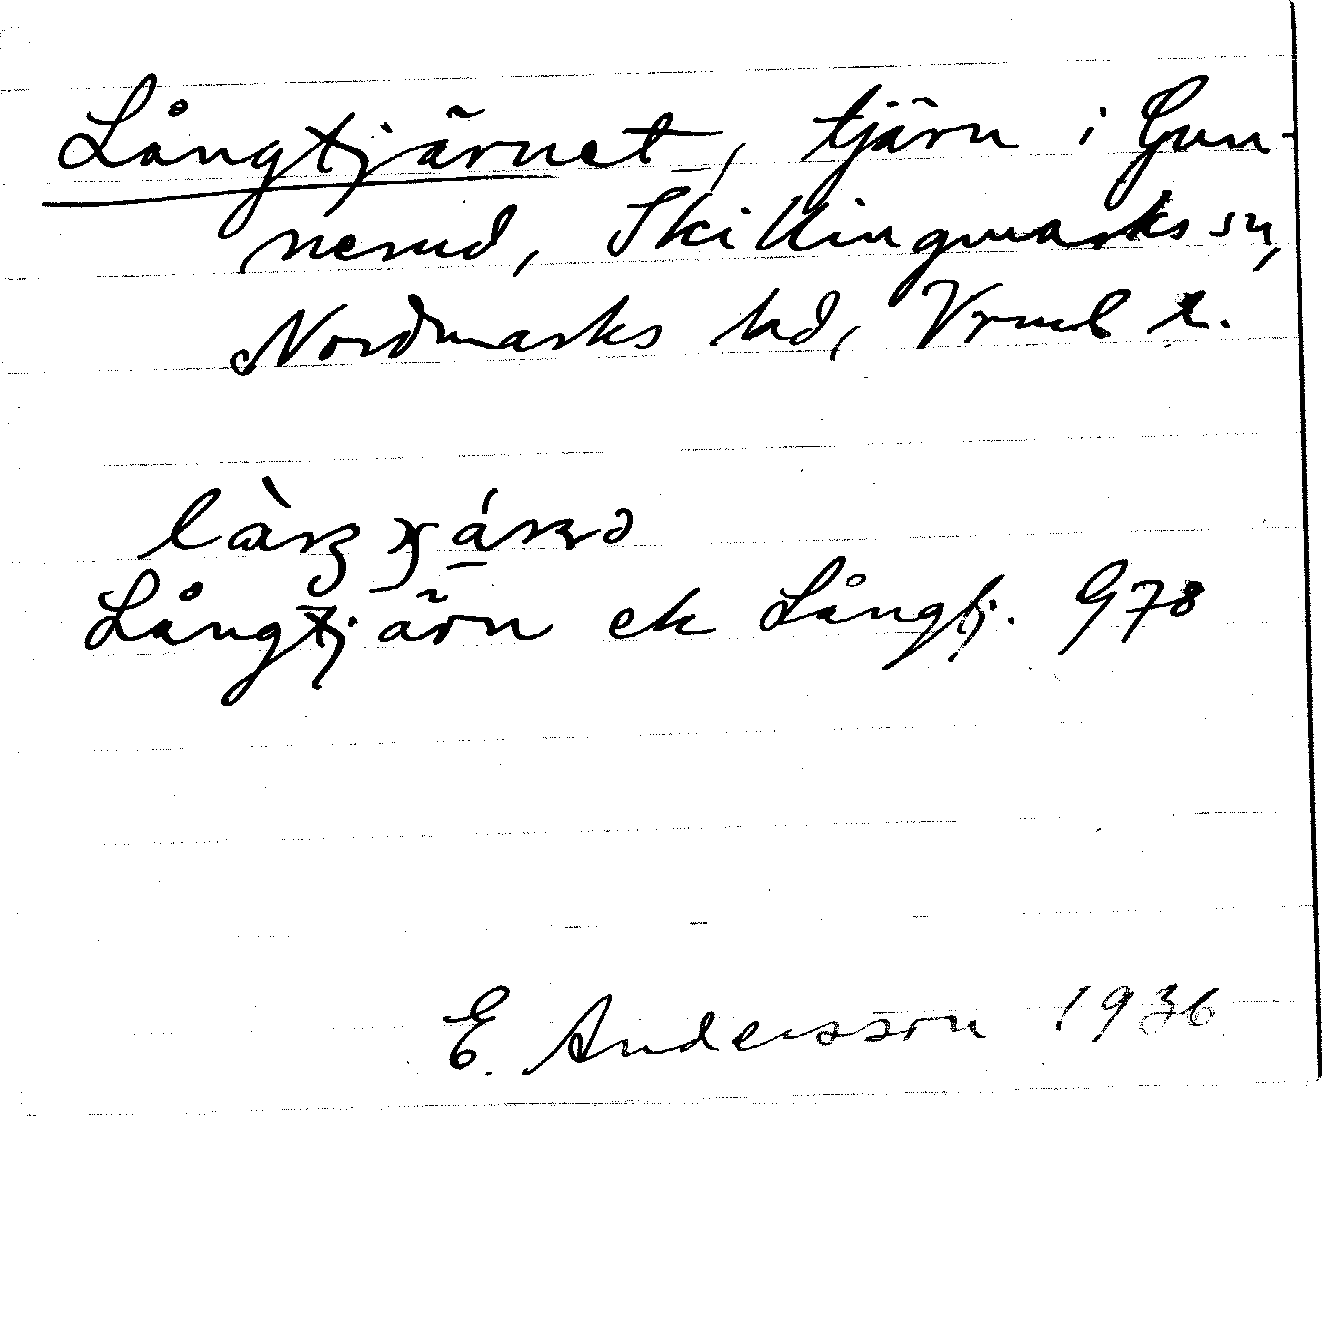 Långtjärnet, tjärn i Gun-
nerud, Skillingmarks sn,
Nordmarks hd, Vrml l.
Långtjärn ek Långtj. G78
E. Andersson 1936